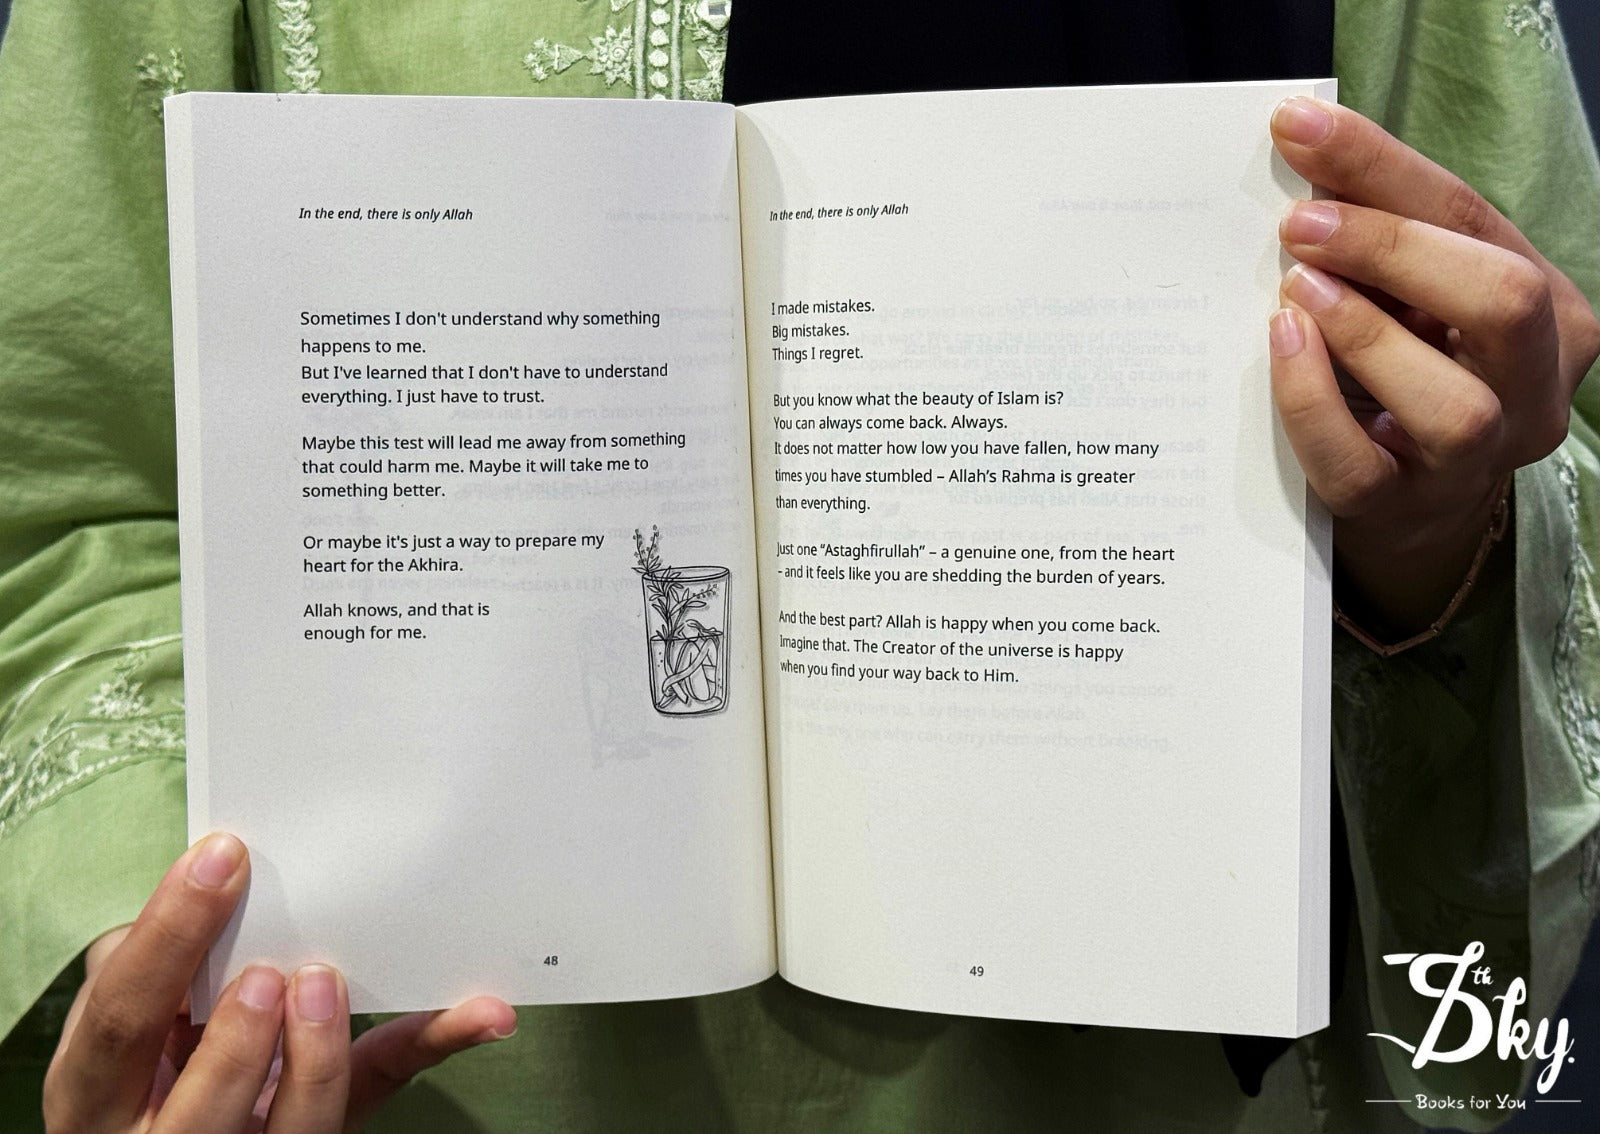 In the end, there is only Allah
Sometimes I don't understand why something
happens to me.
But I've learned that I don't have to understand
everything. I just have to trust.
Maybe this test will lead me away from something
that could harm me. Maybe it will take me to
something better.
Or maybe it's just a way to prepare my
heart for the Akhira.
Allah knows, and that is
enough for me.
48
In the end, there is only Allah
I made mistakes.
Big mistakes.
Things I regret.
But you know what the beauty of Islam is?
You can always come back. Always.
It does not matter how low you have fallen, how many
times you have stumbled – Allah’s Rahma is greater
than everything.
Just one “Astaghfirullah” – a genuine one, from the heart
- and it feels like you are shedding the burden of years.
And the best part? Allah is happy when you come back.
Imagine that. The Creator of the universe is happy
when you find your way back to Him.
49
8th Sky.
Books for You